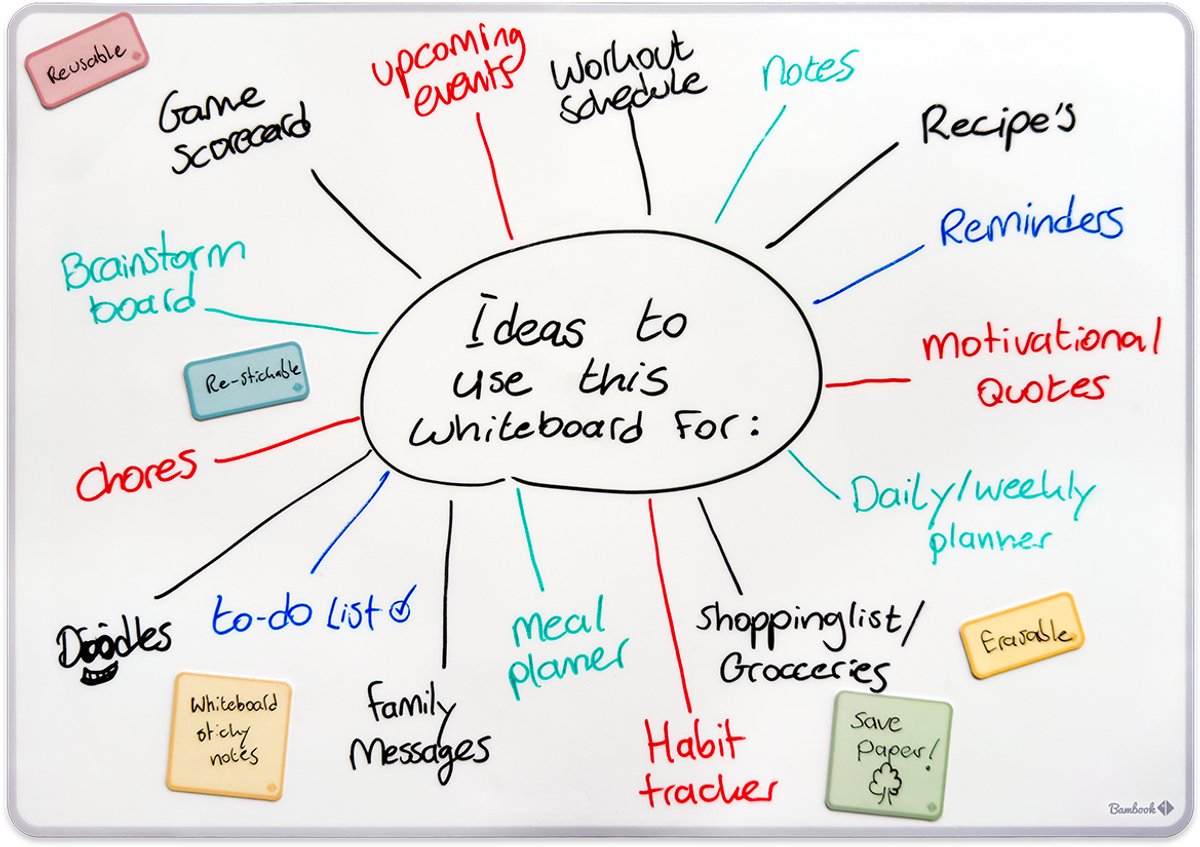 Reusable
Game
scorecard
upcoming
events
Workout
schedule
notes
Recipe's
Reminders
Brainstorm
board
Ideas to
use this
whiteboard For:
motivational
Quotes
Re-stickable
Chores
Daily/weekly
planner
Doodles
to-do List
Meal
planer
Shoppinglist/
Grocceries
Erasable
Family
Messages
Habit
tracker
Whiteboard
sticky
notes
Save
paper!
Bambook